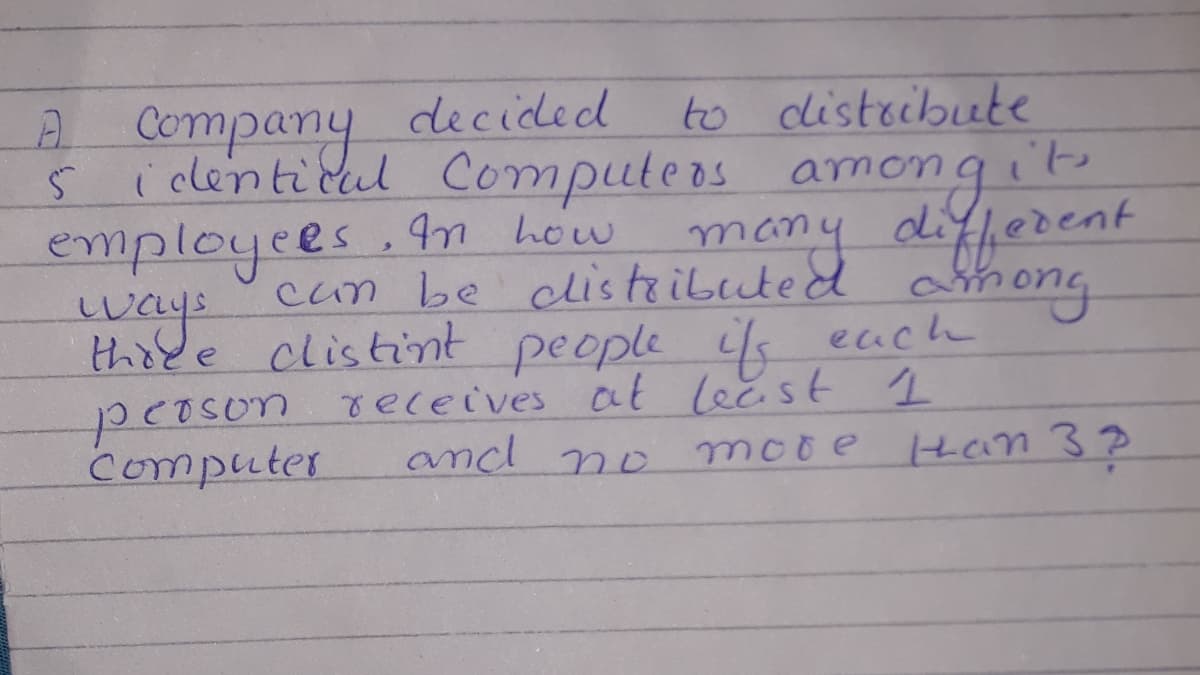 A Company decided to distribute
5 identical Computers among its
employees, In how many different
ways can be distributed among
three distint people if each
person receives at least 1
Computer and no more than 3?